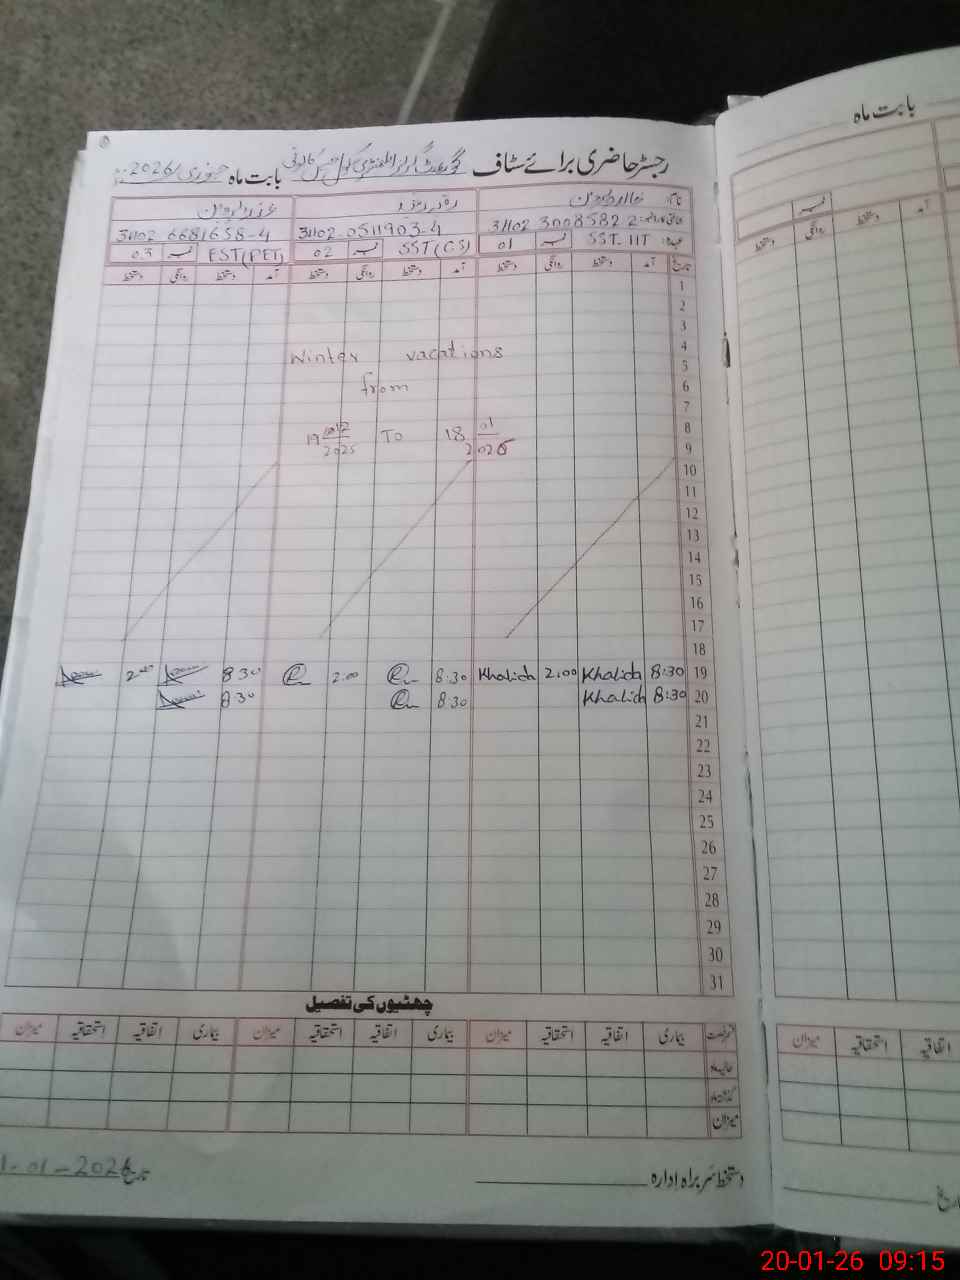 رجسٹر حاضری برائے سٹاف گورنمنٹ گرلز ایلیمنٹری سکول کالونی بابت ماہ جنوری 2026
نام:
31102 3008582 2 31102.0511903-4 31102 6681658-4
عہدہ: SST.IIT نمبر 01 SST(CS) نمبر 02 EST(PET) نمبر 03
تاریخ آمد دستخط روانگی دستخط آمد دستخط روانگی دستخط آمد دستخط روانگی دستخط
1
2
3
4
Winter vacations
5
6
from
7
8
19 12 2025 To 18 01 2026
9
10
11
12
13
14
15
16
17
18
19 8:30 Khalida 2.00 Khalida 8:30 2.00 8 30 2.00
20 8:30 Khalida 8:30 8:30
21
22
23
24
25
26
27
28
29
30
31
چھٹیوں کی تفصیل
قسم رخصت بیماری اتفاقیہ استحقاقیہ میزان بیماری اتفاقیہ استحقاقیہ میزان بیماری اتفاقیہ استحقاقیہ میزان
حالیہ ماہ
گذشتہ ماہ
میزان
دستخط سربراہ ادارہ
تاریخ 1-01-2026
بابت ماہ
آمد دستخط روانگی دستخط
نمبر
اتفاقیہ استحقاقیہ میزان
تاریخ
20-01-26 09:15